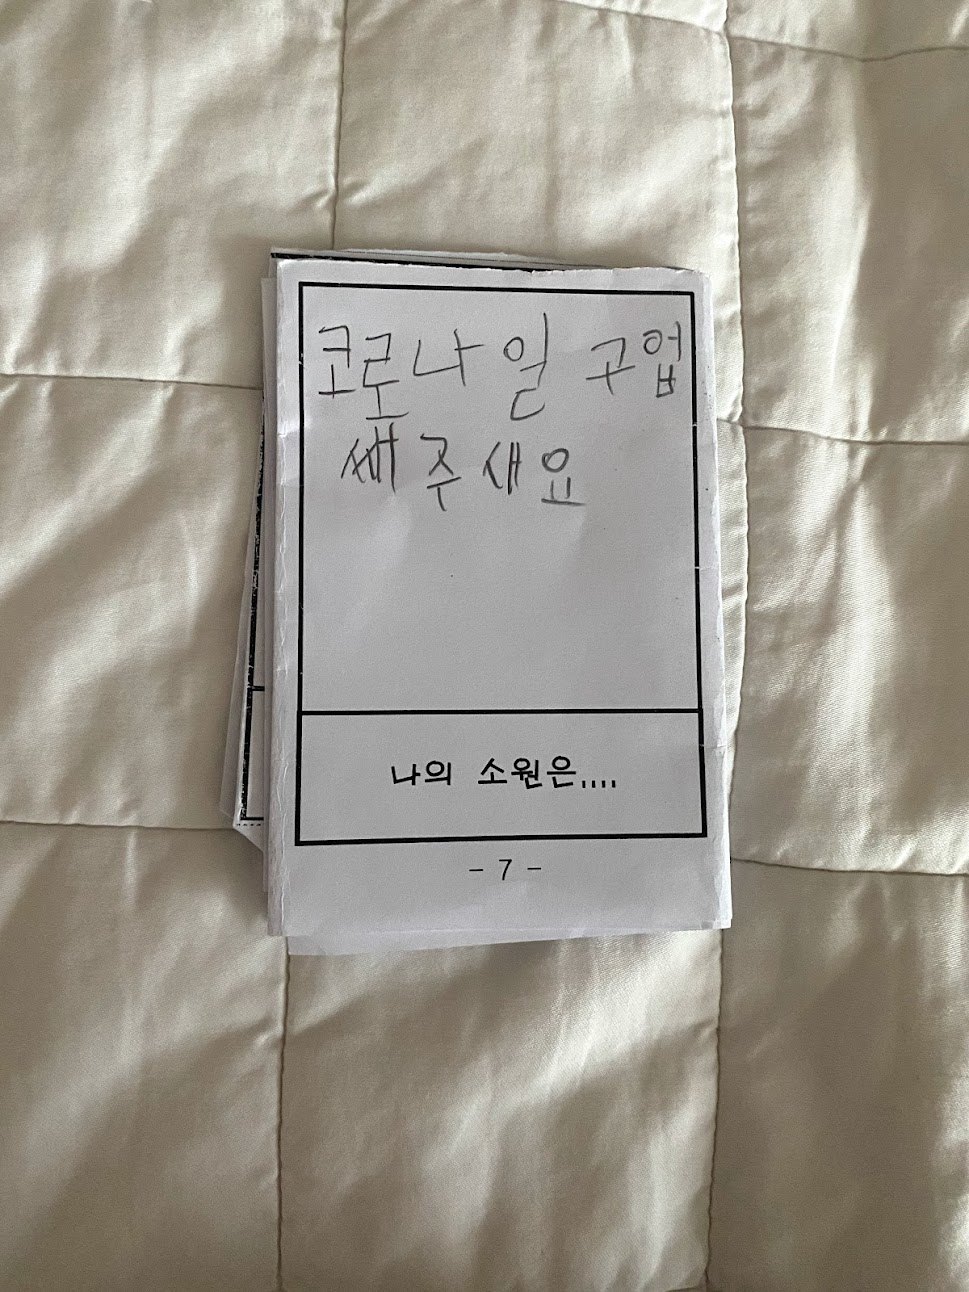 코로나 일구 업
쌔 주새요
나의 소원은....
- 7 -